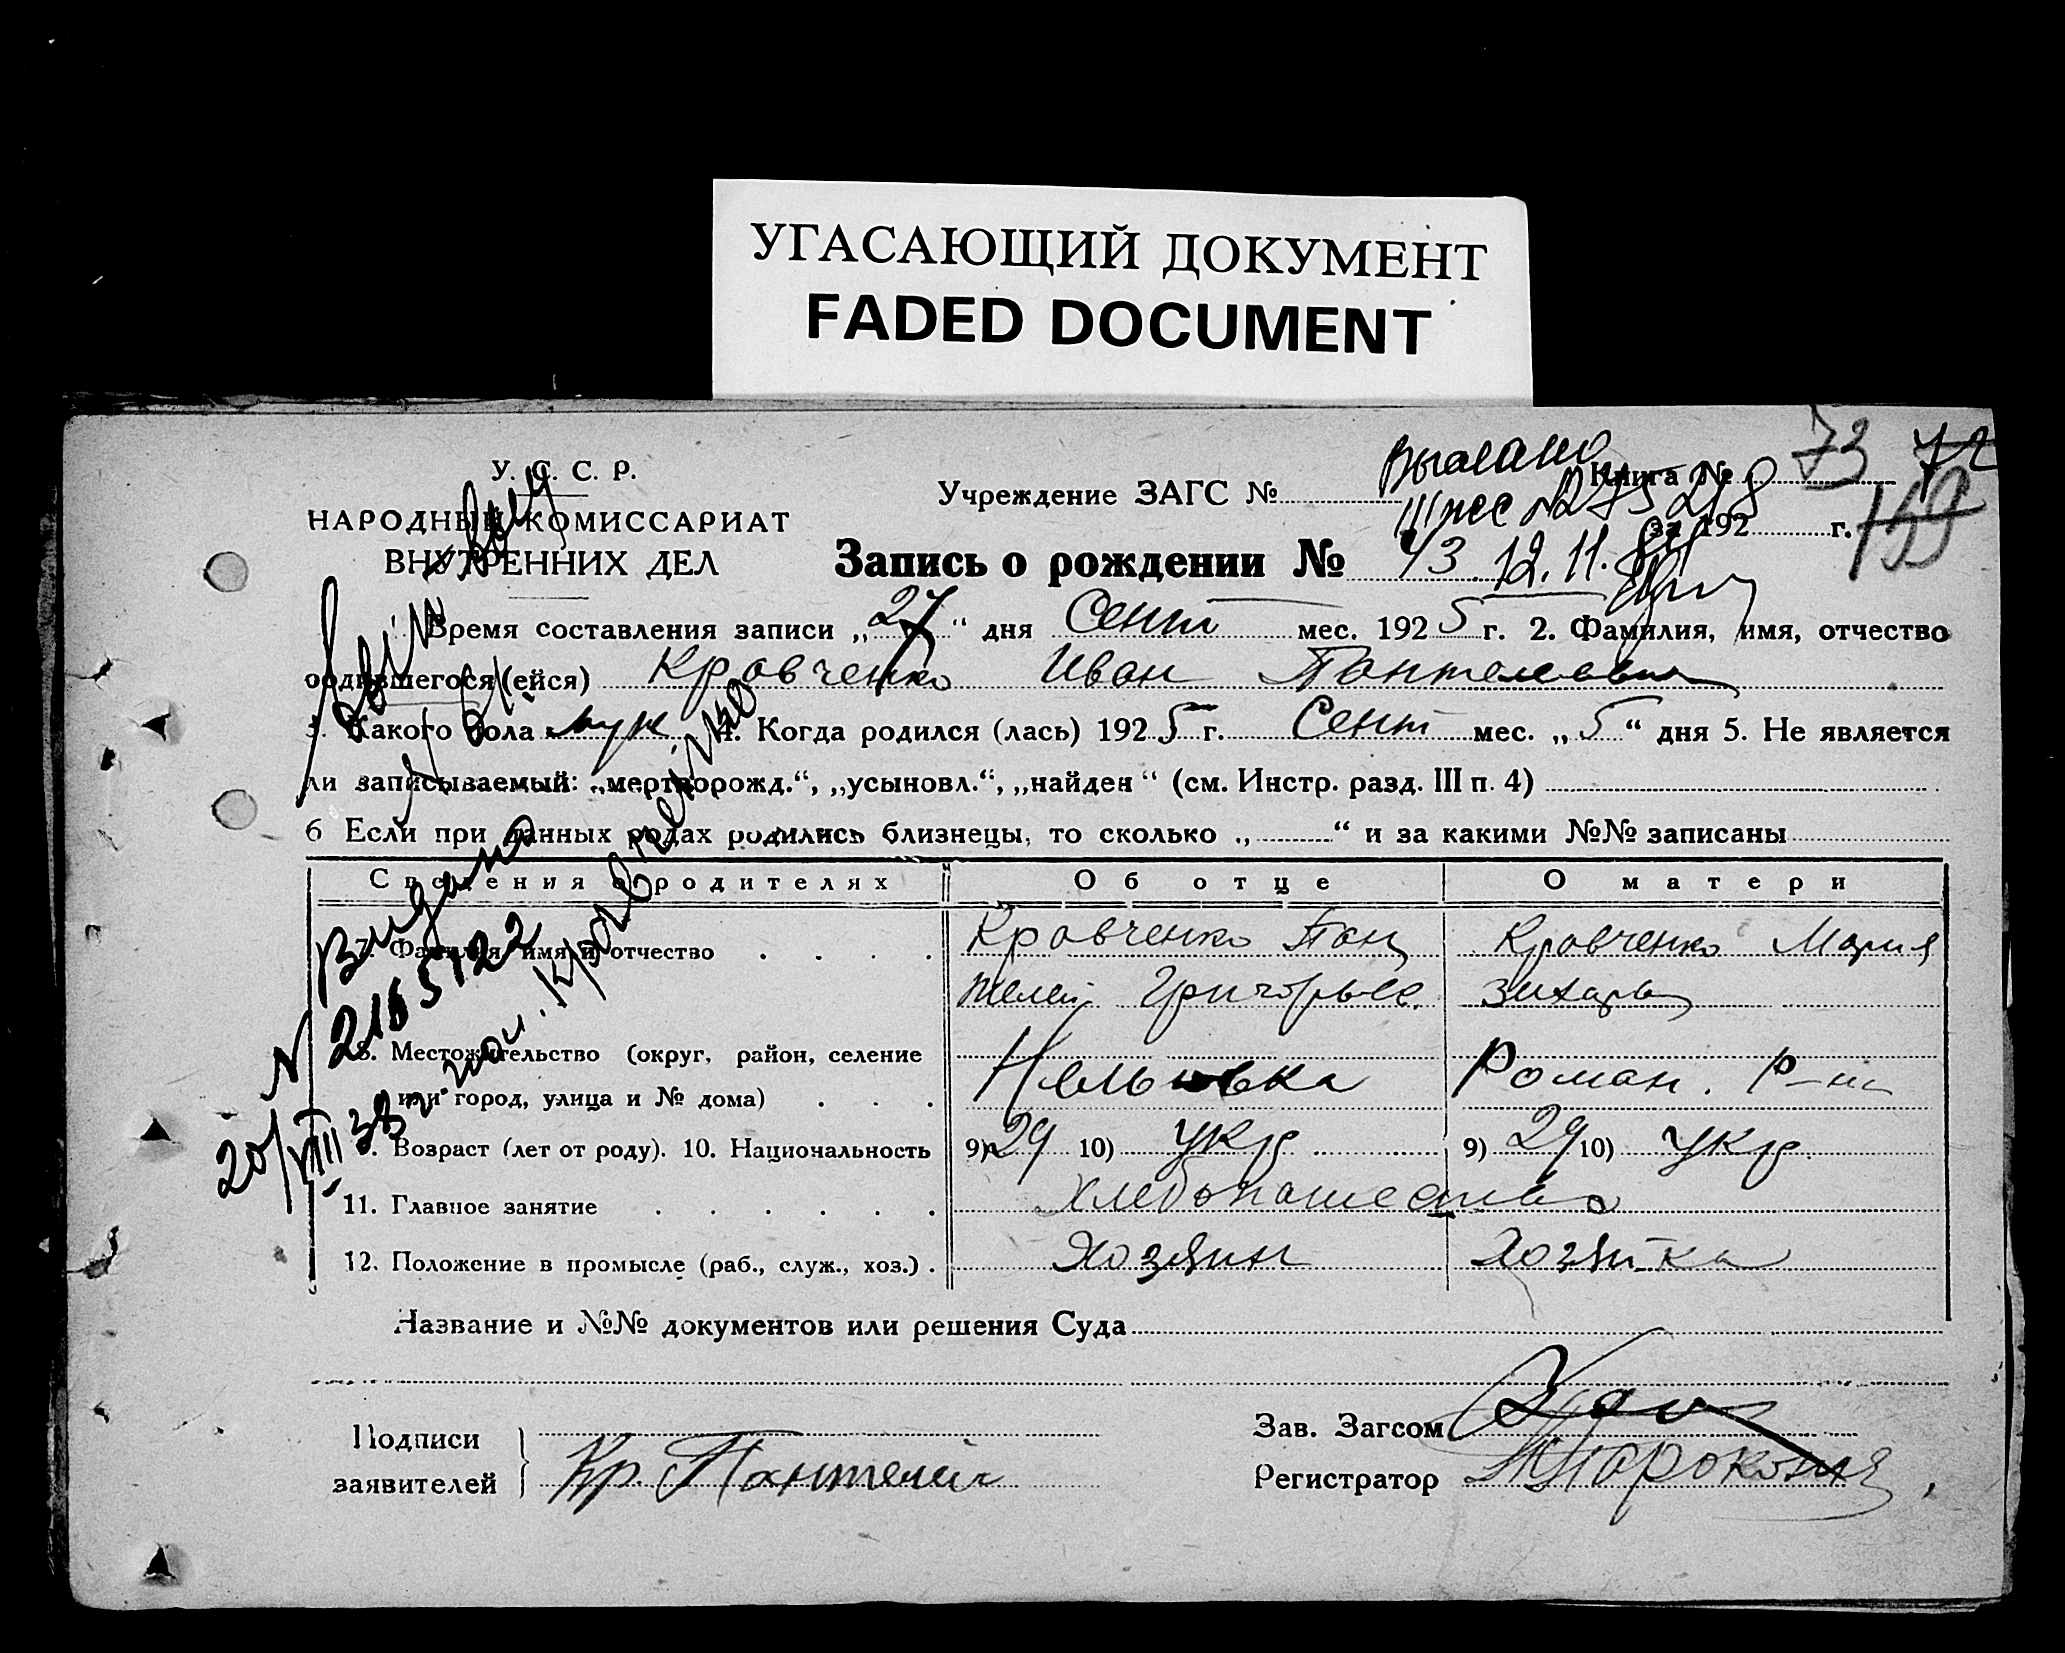 УГАСАЮЩИЙ ДОКУМЕНТ
FADED DOCUMENT
У. С. С. Р.
НАРОДНЫЙ КОМИССАРИАТ
ВНУТРЕННИХ ДЕЛ
Учреждение ЗАГС №
Книга № 73 72
за 192 г. 159
Запись о рождении № 43 12.11.
Время составления записи „27“ дня Сент мес. 1925 г. 2. Фамилия, имя, отчество
родившегося (ейся) Кравченко Иван Пантелеевич
3. Какого пола муж 4. Когда родился (лась) 1925 г. Сент мес. „5“ дня 5. Не является
ли записываемый: „мертворожд.“, „усыновл.“, „найден“ (см. Инстр. разд. III п. 4)
6 Если при данных родах родились близнецы, то сколько „ “ и за какими №№ записаны
Сведения о родителях Об отце О матери
7. Фамилия, имя и отчество Кравченко Пан Кравченко Мария
телей Григорьев. Захарь
8. Местожительство (округ, район, селение
или город, улица и № дома) Роман. р-на
9. Возраст (лет от роду). 10. Национальность 9) 29 10) укр 9) 29 10) укр.
11. Главное занятие Хлебопашество
12. Положение в промысле (раб., служ., хоз.) Хозяин Хозяйка
Название и №№ документов или решения Суда
Подписи
заявителей Кр. Пантелей
Зав. Загсом
Регистратор
Видано
N 2165122
20/VIII 38